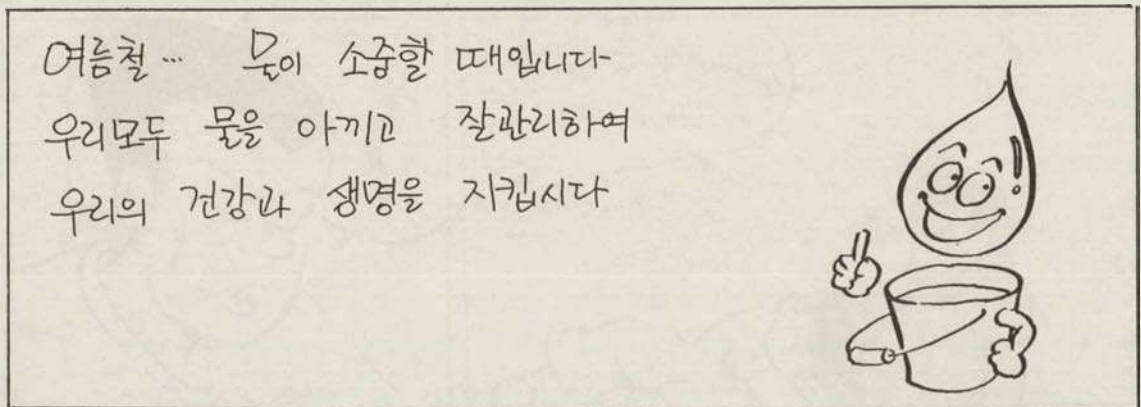 여름철… 물이 소중할 때입니다
우리모두 물을 아끼고 잘관리하여
우리의 건강과 생명을 지킵시다